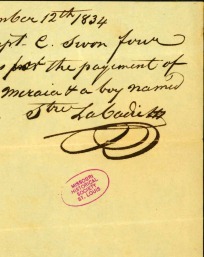 mber 12th 1834
apt. C. Swon four
s for the payment of
Meraia & a boy named
Ste LaCadie
MISSOURI
HISTORICAL
SOCIETY
ST. LOUIS